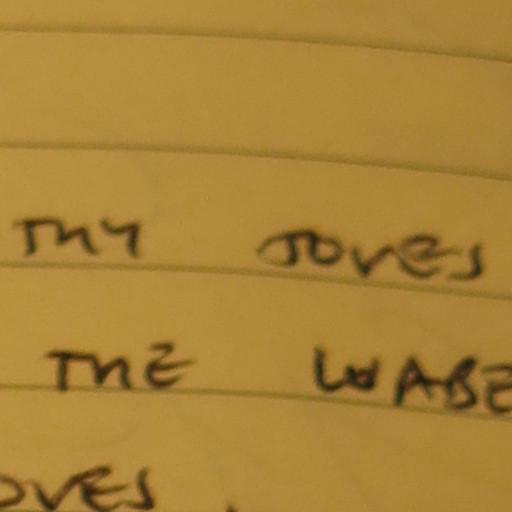 THY TOVES
THE WABE
OVES.